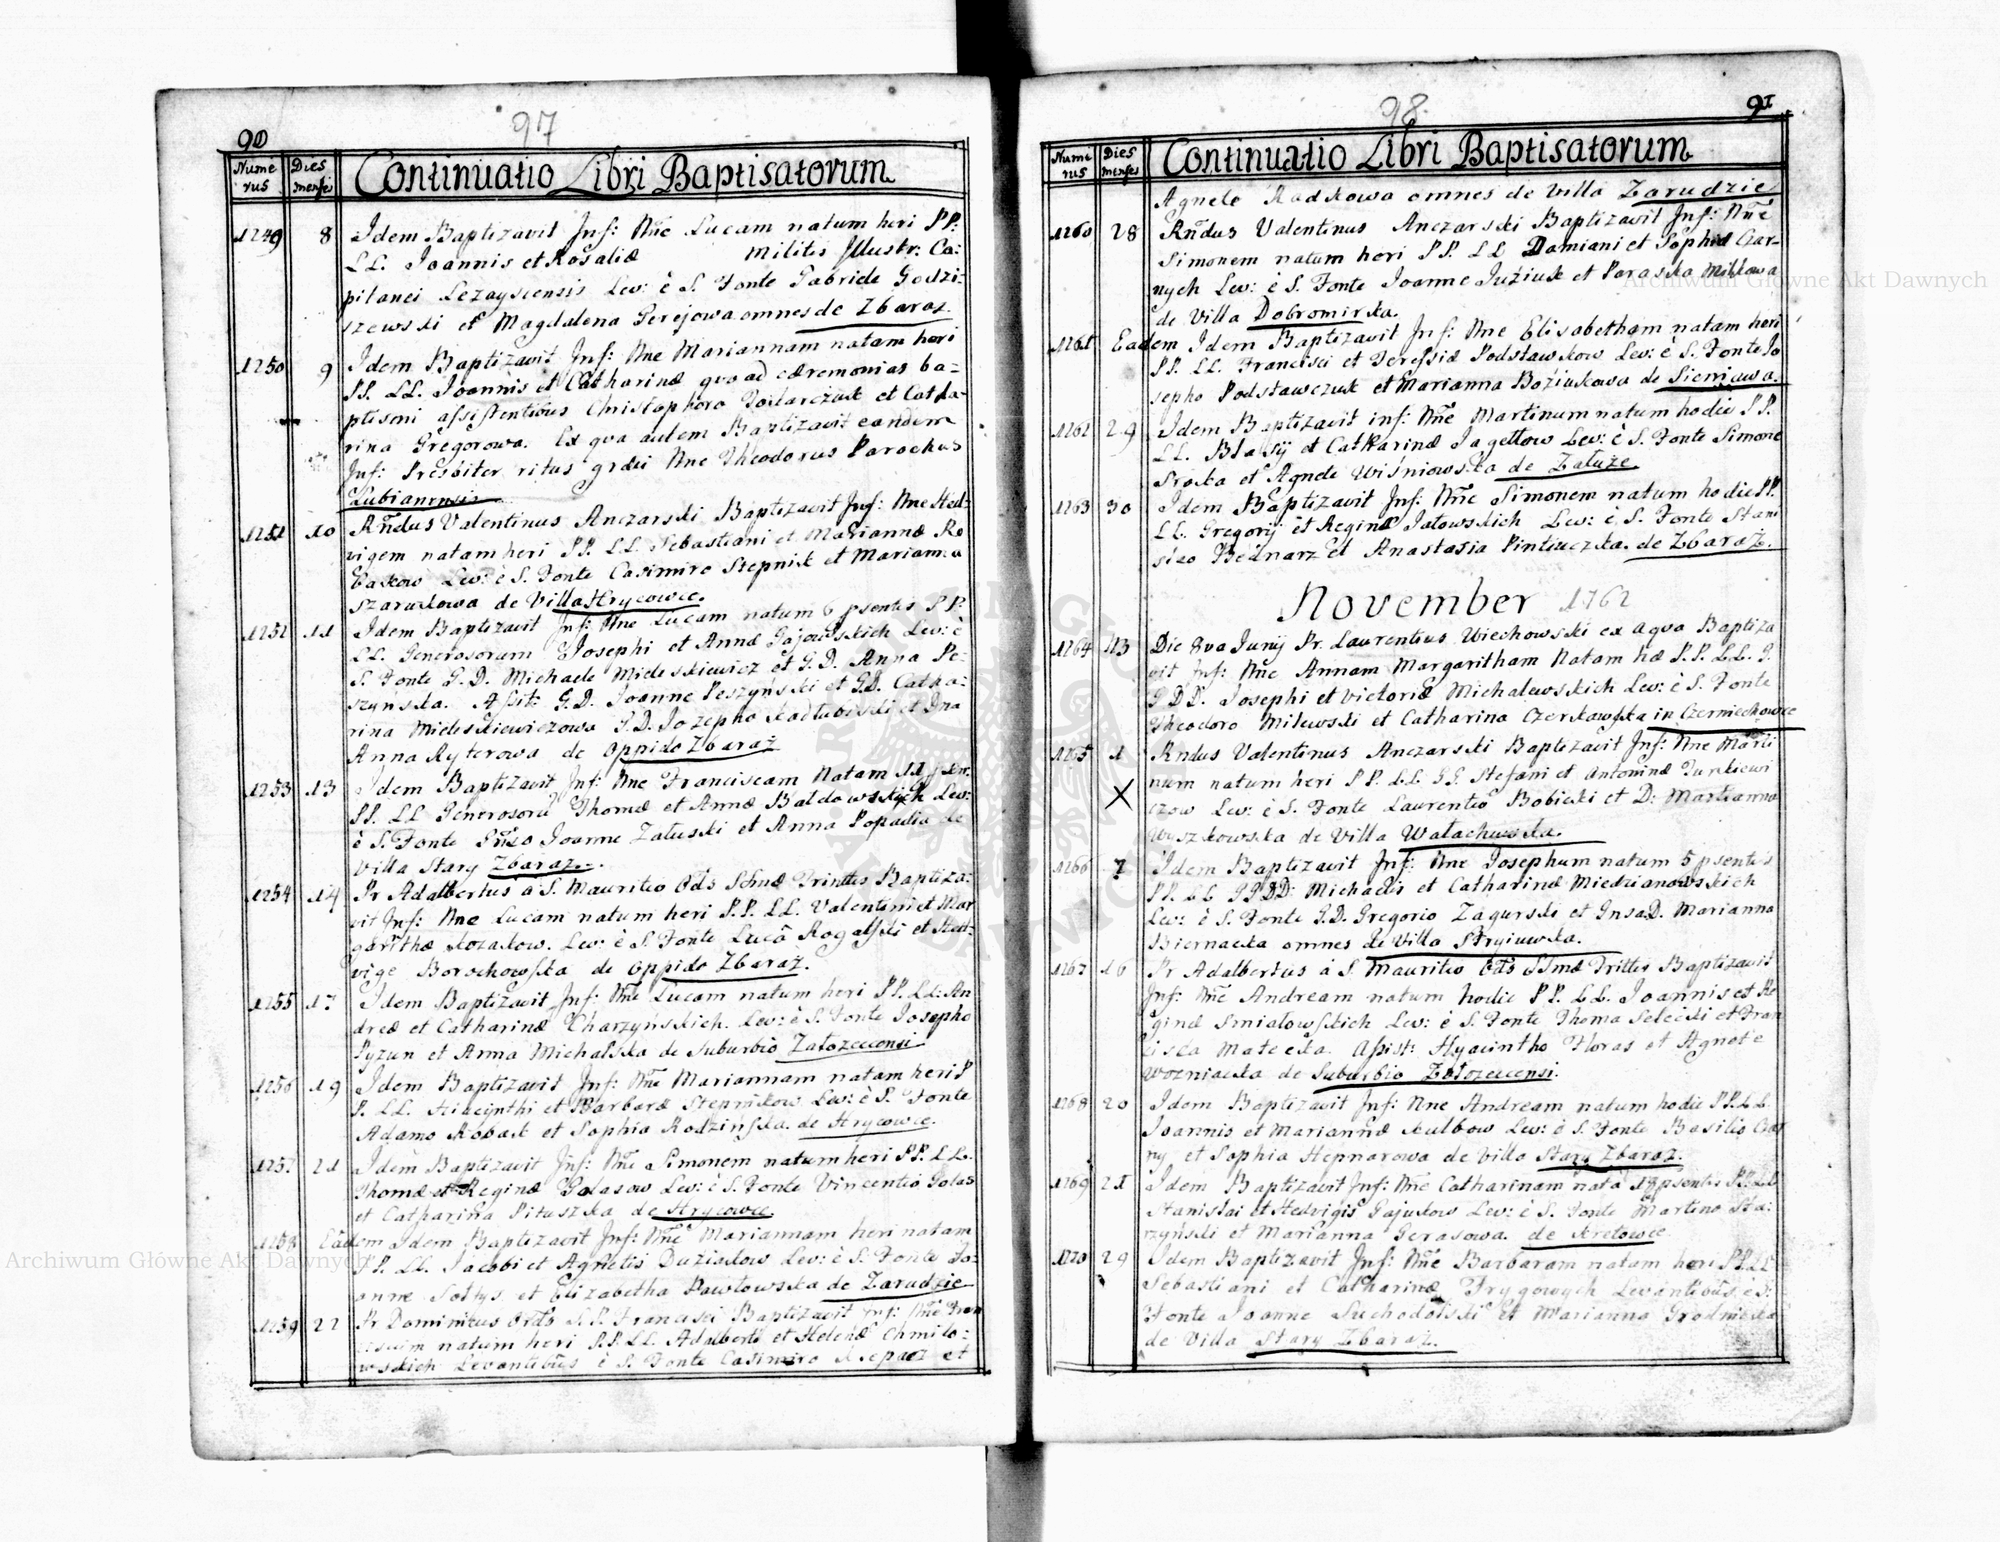 97
90
Nume
rus
Dies
mensis
Continuatio Libri Baptisatorum
1249 8 Idem Baptizavit Inf: Nne Lucam natum heri PP:
LL. Joannis et Rosaliæ Militis Illustr: Ca:
pitanei Lezayscensis Lev: è S. Fonte Gabriele Godzi:
szewski et Magdalena Gerejowa omnes de Zbaraz
1250 9 Idem Baptizavit Inf: Nne Mariannam natam heri
PP. LL. Joannis et Catharinæ quoad cæremonias ba=
ptismi assistentibus Christophoro et Catha-
rina Gregorowa. Ex qua autem Baptizavit eandem
Inf: Presbiter ritus græci Nne Theodorus Parochus
Lubianensis
1251 10 Rndus Valentinus Anczarski Baptizavit Inf: Nne Hed-
vigem natam heri PP. LL Sebastiani et Mariannæ Ro
Lev: è S. Fonte Casimiro Stepnik et Marianna
Szarukowa de Villa Hrycowce.
1252 11 Idem Baptizavit Inf: Nne Lucam natum 6 psentis PP:
LL. Generosorum Josephi et Annæ Gajowskich Lev: è
S. Fonte G.D. Michaele Mieleskiewicz et G.D. Anna Pe-
szynska. Assit: G.D. Joanne Peszyński et G.D. Catha:
rina Mieleskiewiczowa G.D. Jozepho Kadłubiski et Dna
Anna Ryterowa de Oppido Zbaraż
1253 13 Idem Baptizavit Inf: Nne Franciscam Natam 11
PP. LL Generosoru Thomæ et Annæ Baldowskich Lev:
è S. Fonte Joanne Załuski et Anna Popadia de
Villa Stary Zbaraz.
1254 14 Pr Adalbertus à S. Mauritio Ords SSmæ Trinitis Baptiza:
vit Inf: Nne Lucam natum heri P.P. LL. Valentini et Mar
garithæ Kozakow. Lev: è S. Fonte Lucâ Rogalski et Hed-
vige Borschowska de Oppido Zbaraż.
1255 17 Idem Baptizavit Inf: Nne Lucam natum heri PP. LL: An
dreæ et Catharinæ Charzyńskich. Lev: è S. Fonte Josepho
Pyzun et Anna Michalska de Suburbio Załozecensi
1256 19 Idem Baptizavit Inf: Nne Mariannam natam heri P
P. LL. Hiacynthi et Barbaræ Stepnikow Lev: è S. Fonte
Adamo Robak et Sophia Rodzińska. de Hrycowce.
1257 21 Idem Baptizavit Inf: Nne Simonem natum heri PP. LL.
Thomæ et Reginæ Golasow Lev: è S. Fonte Vincentio Golas
et Catharina Pituszka de Hrycowce.
1258 Eadem Idem Baptizavit Inf: Nne Mariannam heri natam
PP. LL. Jacobi et Agnetis Duziakow Lev: è S. Fonte Jo:
anne Sołtys et Elizabetha Pawłowska de Zarudzie
1259 22 Pr Dominicus Ords S. S. Francisci Baptizavit Inf: Nne Fran
ciscum natum heri P.P. LL. Adalberti et Helenæ Chmilo:
wskich Levantibus è S. Fonte Casimiro et
98
91
Nume
rus
Dies
mensis
Continuatio Libri Baptisatorum
Agnete Radkowa omnes de Villa Zarudzie
1260 28 Rndus Valentinus Anczarski Baptizavit Inf: Nne
Simonem natum heri PP. LL Damiani et Sophiæ Czar-
nych Lev: è S. Fonte Joanne Juziuk et Paraska Milkowa
de Villa Dobromirka.
1261 Eadem Idem Baptizavit Inf: Nne Elisabetham natam heri
PP. LL. Francisci et Teressiæ Podstawskow Lev: è S. Fonte Jo
sepho Podstawczuk et Marianna Boziukowa de Sieniawa.
1262 29 Idem Baptizavit inf: Nne Martinum natum hodie PP.
LL. Blasij et Catharinæ Jagellow Lev: è S. Fonte Simone
Sroka et Agnete Wiśniowska de Załuze
1263 30 Idem Baptizavit Inf: Nne Simonem natum hodie PP.
LL. Gregorij et Reginæ Jatowskich Lev: è S. Fonte Stani
slao Bednarz et Anastasia Pintiuczka. de Zbaraż.
November 1762
1264 13 Die 8va Junij Pr. Laurentius Wiechowski ex aqua Baptiza
vit Inf: Nne Annam Margaritham Natam hæ P.P. LL. G.
GDD. Josephi et Victoriæ Michalewskich Lev: è S. Fonte
Theodoro Milewski et Catharina Czerkawska in Czerniechowce
1265 1 Rndus Valentinus Anczarski Baptizavit Inf: Nne Marti
num natum heri PP. LL. GG. Stefani et Antoninæ Jurkiewi
czow Lev: è S. Fonte Laurentio Bobicki et D: Marianna
Wyszkowska de Villa Wałachuwka.
1266 7 Idem Baptizavit Inf: Nne Josephum natum 5 psentis
PP. LL GGDD: Michaelis et Catharinæ Miedzianowskich
Lev: è S. Fonte G.D. Gregorio Zagurski et GnsaD. Marianna
Biernacka omnes de Villa Stryiuwka.
1267 16 Pr Adalbertus à S. Mauritio Ords SSmæ Trittis Baptizavit
Inf: Nne Andream natum hodie PP. LL. Joannis et Re
ginæ Smiałowskich Lev: è S. Fonte Thoma Selecki et Fran
cisca Matecka. Assist: Hyacintho Floras et Agnete
Wozniacka de Suburbio Załozecensi.
1268 20 Idem Baptizavit Inf: Nne Andream natum hodie PP. LL.
Joannis et Mariannæ Kulbow Lev: è S. Fonte Basilio Czar
ny et Sophia Hepnarowa de Villa Stary Zbaraz.
1269 21 Idem Baptizavit Inf: Nne Catharinam natâ 19 psentis PP. LL
Stanislai et Hedvigis Gajukow Lev: è S. Fonte Martino Sta:
rzyński et Marianna Gerasowa. de Kretowce
1270 29 Idem Baptizavit Inf: Nne Barbaram natam heri PP. LL
Sebastiani et Catharinæ Frygowych Levantibus è S:
Fonte Joanne Suchodolski et Marianna Grodnicka
de Villa Stary Zbaraz.
Archiwum Główne Akt Dawnych
Archiwum Główne Akt Dawnych